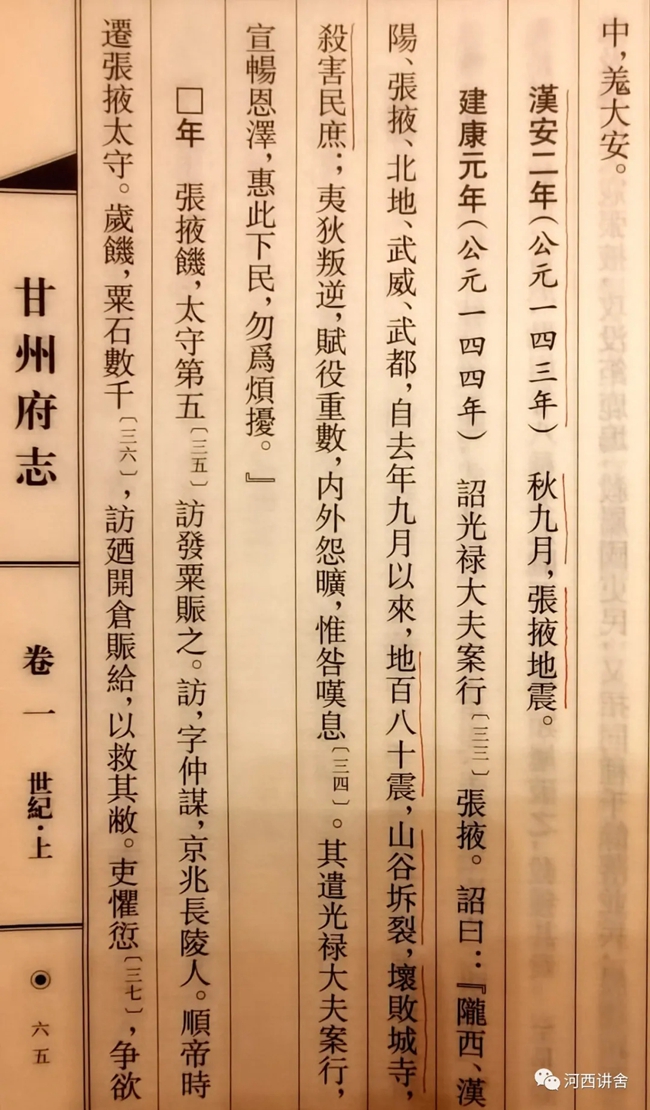 中，羗大安。
漢安二年（公元一四三年） 秋九月，張掖地震。
建康元年（公元一四四年） 詔光禄大夫案行〔三三〕張掖。詔曰：『隴西、漢
陽、張掖、北地、武威、武都，自去年九月以來，地百八十震，山谷坼裂，壞敗城寺，
殺害民庶；夷狄叛逆，賦役重數，内外怨曠，惟咎嘆息〔三四〕。其遣光禄大夫案行，
宣暢恩澤，惠此下民，勿爲煩擾。』
□年 張掖饑，太守第五〔三五〕訪發粟賑之。訪，字仲謀，京兆長陵人。順帝時
遷張掖太守。歲饑，粟石數千〔三六〕，訪廼開倉賑給，以救其敝。吏懼愆〔三七〕，争欲
甘州府志
卷一 世紀·上
六五
河西讲舍